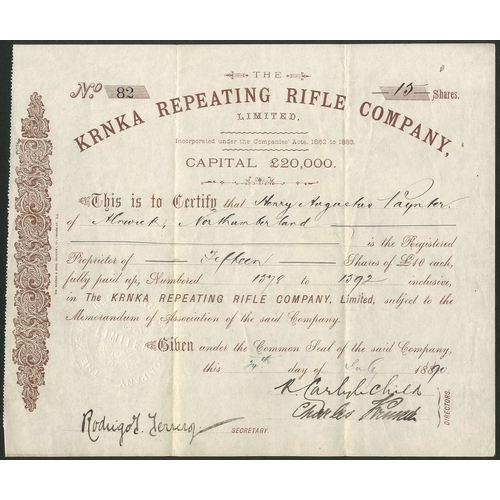 THE
No 82
15 Shares.
KRNKA REPEATING RIFLE COMPANY,
LIMITED,
Incorporated under the Companies' Acts, 1862 to 1883.
CAPITAL £20,000.
This is to Certify that Henry Augustus Paynter
of Alnwick, Northumberland
is the Registered
Proprietor of Fifteen Shares of £10 each,
fully paid up, Numbered 1378 to 1392 inclusive,
in The KRNKA REPEATING RIFLE COMPANY, Limited, subject to the
Memorandum of Association of the said Company.
Given under the Common Seal of the said Company,
this day of July 1890
R. Carlyle Child
Charles
DIRECTORS.
Rodrigo
SECRETARY.